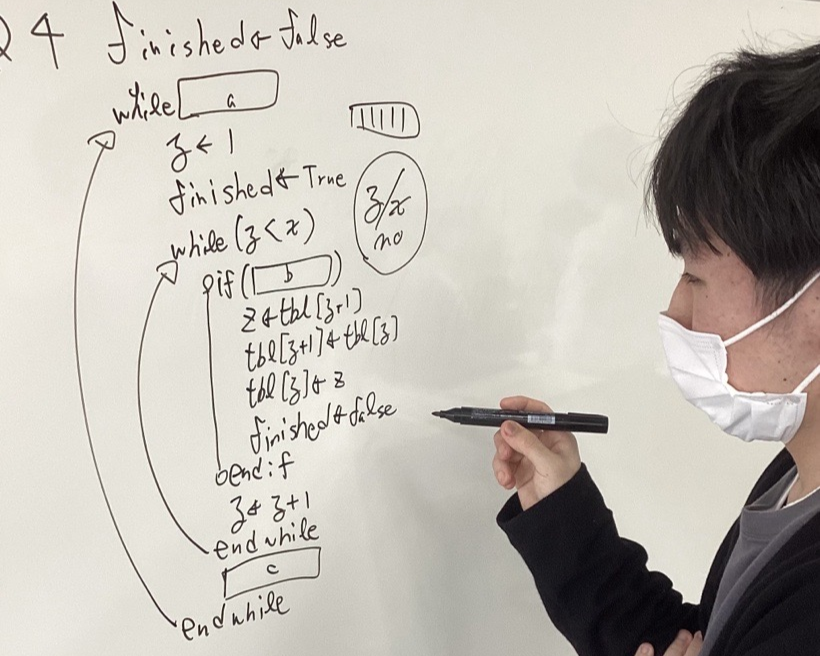 Q4 finished←false
while a
z←1
finished←True
while(z<x)
if( b )
z←tbl[z+1]
tbl[z+1]←tbl[z]
tbl[z]←z
finished←false
endif
z←z+1
endwhile
c
endwhile
z/x
no